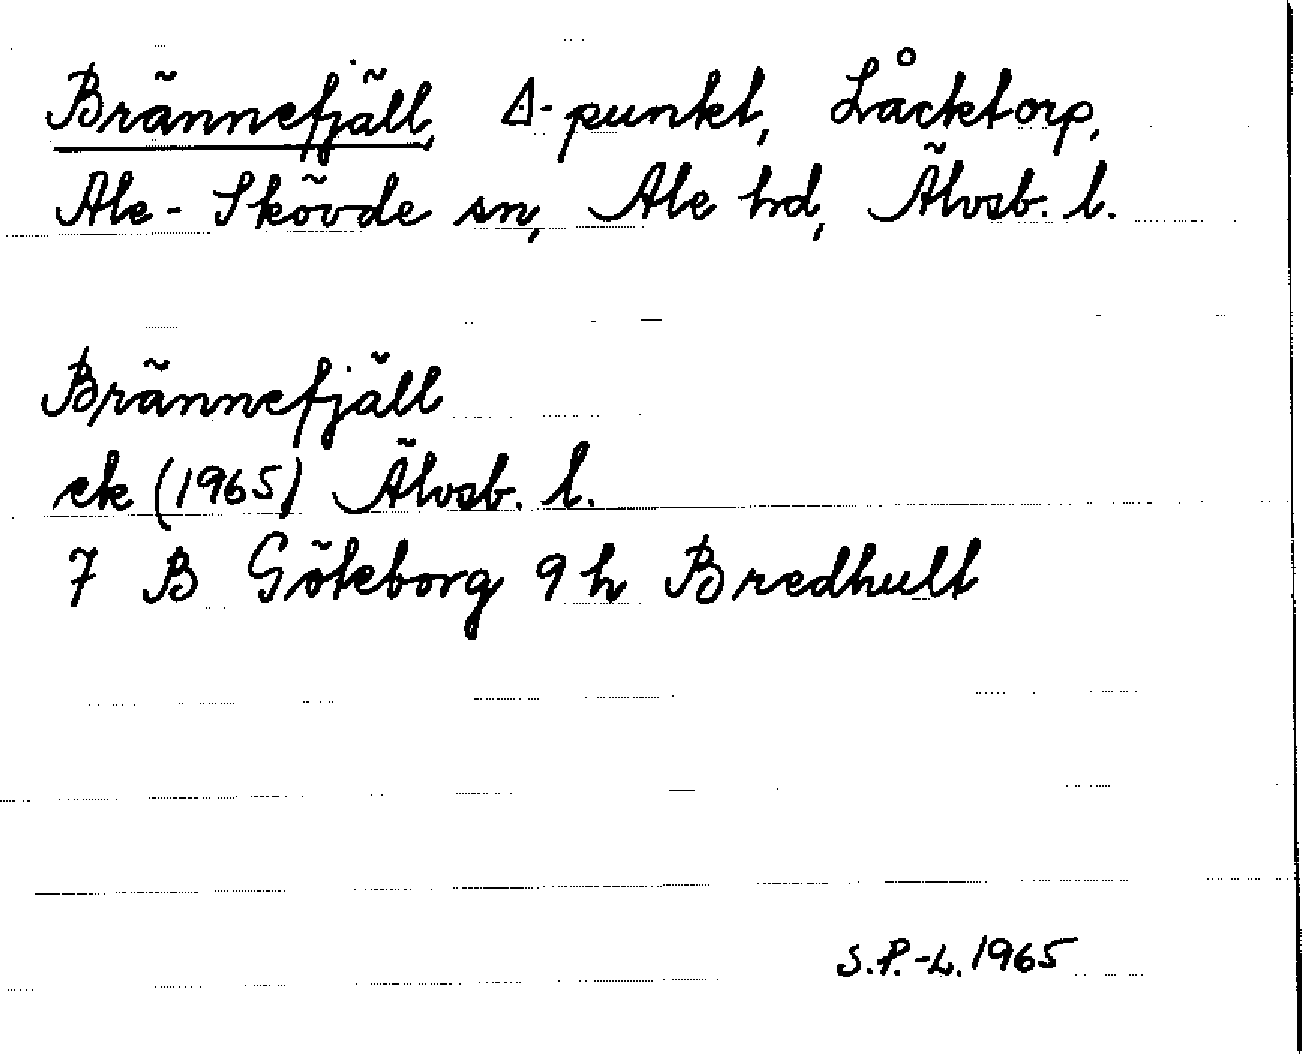 Brännefjäll, Δ-punkt, Låcktorp,
Ale-Skövde sn, Ale hd, Älvsb. l.
Brännefjäll
ek (1965) Älvsb. l.
7 B Göteborg 9 h Bredhult
S.P.-L. 1965